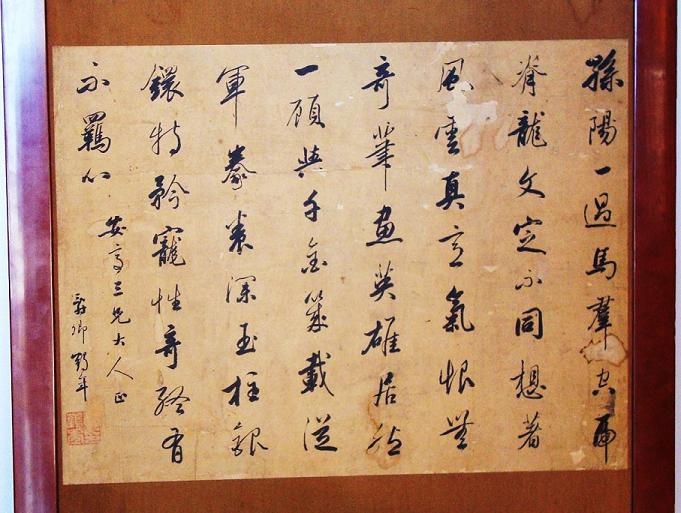 孫陽一過馬羣空虎
脊龍文定不同想着
風雲真意氣恨無
奇筆画英雄居然
一顧與千金幾載從
軍豢養深玉柱銀
鐶特矜寵性奇終有
不羈心
安亭三兄大人正
爵卿鶴年